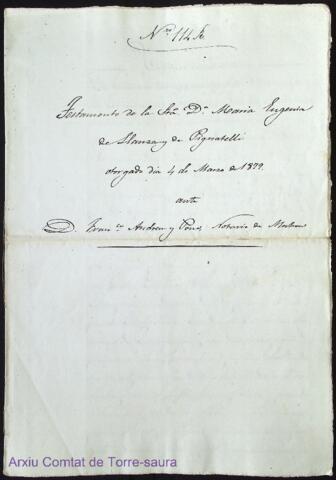 Nº 114
Testamento de la Sra. Dª Maria Eugenia
de Llanza y de Pignatelli
otorgado dia 4 de Marzo de 1879
ante
D. Franco. Andreu y Pons, Notario de Mahon
Arxiu Comtat de Torre-saura